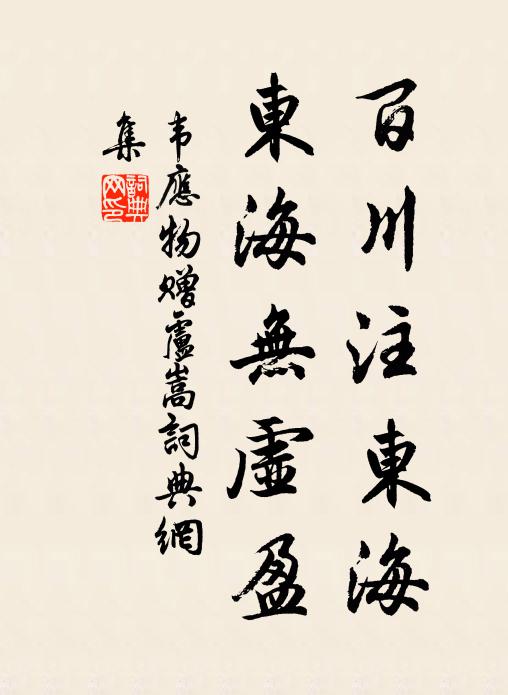 百川注東海
東海無虛盈
韦應物贈盧嵩詞典網
集
詞典網印